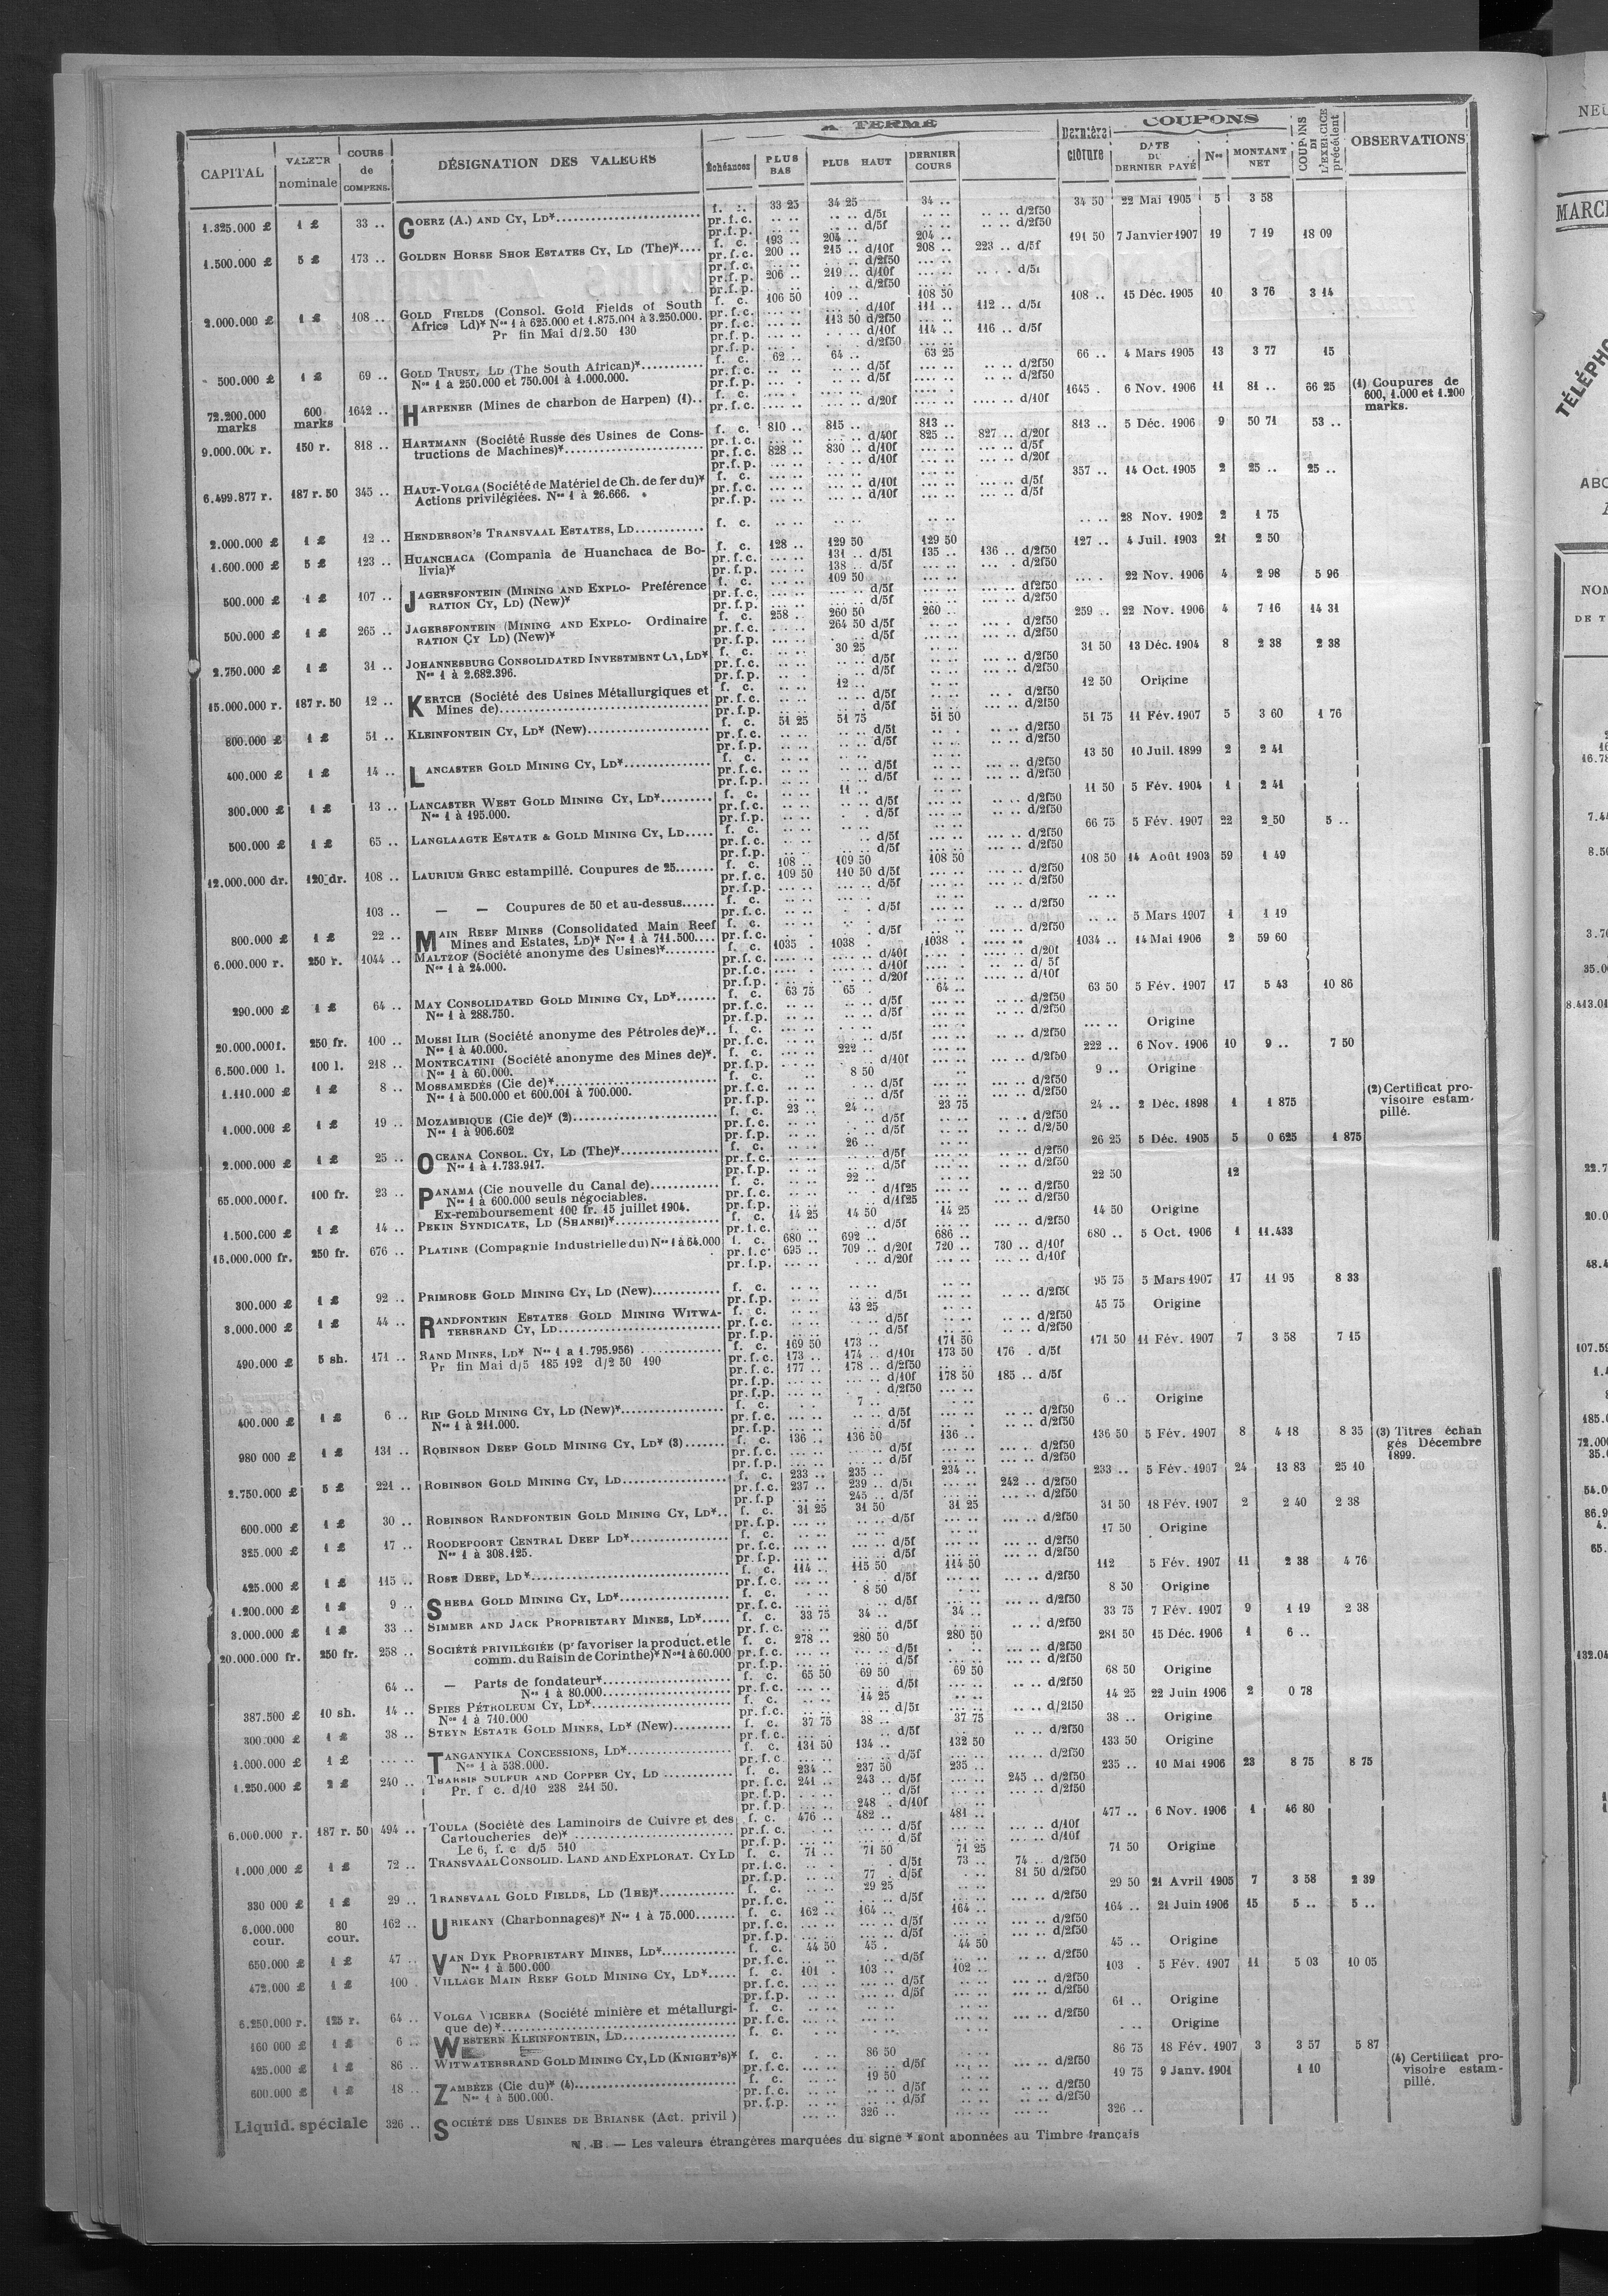 A TERME
COUPONS
CAPITAL | VALEUR nominale | COURS de COMPENS. | DÉSIGNATION DES VALEURS | Échéances | PLUS BAS | PLUS HAUT | DERNIER COURS | Dernière clôture | DATE DU DERNIER PAYÉ | Nos | MONTANT NET | COUPONS DE L'EXERCICE précédent | OBSERVATIONS
1.325.000 £ | 1 £ | 33 .. | GOERZ (A.) AND CY, LD* | f. c. | 33 25 | 34 25 | 34 .. | 34 50 | 22 Mai 1905 | 5 | 3 58
pr.f.c. .. .. d/5f .. .. d/2f50
pr.f.p. .. .. d/5f .. .. d/2f50
1.500.000 £ | 5 £ | 173 .. | GOLDEN HORSE SHOE ESTATES CY, LD (The)* | f. c. | 193 .. | 204 .. | 204 .. | 191 50 | 7 Janvier 1907 | 19 | 7 19 | 18 09
pr.f.c. 200 .. 215 .. d/10f 208 .. 223 .. d/5f
pr.f.c. .. .. d/2f50
pr.f.p. 206 .. 219 .. d/10f
pr.f.p. .. .. d/2f50
2.000.000 £ | 1 £ | 108 .. | GOLD FIELDS (Consol. Gold Fields of South | f. c. | 106 50 | 109 .. | 108 50 | 108 .. | 15 Déc. 1905 | 10 | 3 76 | 3 14
Africa Ld)* Nos 1 à 625.000 et 1.875.001 à 3.250.000. pr.f.c. .. .. d/10f 111 .. 112 .. d/5f
Pr fin Mai d/2.50 130 pr.f.c. 113 50 d/2f50
pr.f.p. .. .. d/10f 114 .. 116 .. d/5f
pr.f.p. .. .. d/2f50
500.000 £ | 1 £ | 69 .. | GOLD TRUST, LD (The South African)* | f. c. | 62 .. | 64 .. | 63 25 | 66 .. | 4 Mars 1905 | 13 | 3 77 | 15
Nos 1 à 250.000 et 750.001 à 1.000.000.
72.200.000 marks | 600 marks | 1642 .. | HARPENER (Mines de charbon de Harpen) (1) | f. c. | 1645 . | 6 Nov. 1906 | 11 | 81 .. | 66 25 | (1) Coupures de
600, 1.000 et 1.200
marks.
pr.f.c. .. .. d/20f .. .. d/10f
9.000.000 r. | 150 r. | 818 .. | HARTMANN (Société Russe des Usines de Cons- | f. c. | 810 .. | 815 .. | 813 .. | 813 .. | 5 Déc. 1906 | 9 | 50 71 | 53 ..
tructions de Machines)* pr.f.c. .. .. d/40f 825 .. 827 .. d/20f
pr.f.c. 828 .. 830 .. d/10f .. .. d/5f
pr.f.p. .. .. d/10f .. .. d/20f
6.499.877 r. | 187 r. 50 | 345 .. | HAUT-VOLGA (Société de Matériel de Ch. de fer du)* | f. c. | 357 .. | 14 Oct. 1905 | 2 | 25 .. | 25 ..
Actions privilégiées. Nos 1 à 26.666.
2.000.000 £ | 1 £ | 12 .. | HENDERSON'S TRANSVAAL ESTATES, LD | f. c. | .. .. | 28 Nov. 1902 | 2 | 1 75
1.600.000 £ | 5 £ | 123 .. | HUANCHACA (Compania de Huanchaca de Bo- | f. c. | 128 .. | 129 50 | 129 50 | 127 .. | 4 Juil. 1903 | 21 | 2 50
livia)* pr.f.c. 131 .. d/5f 135 .. 136 .. d/2f50
pr.f.p. 138 .. d/5f .. .. d/2f50
500.000 £ | 1 £ | 107 .. | JAGERSFONTEIN (MINING AND EXPLO- Préférence | f. c. | 109 50 | .. .. | 22 Nov. 1906 | 4 | 2 98 | 5 96
RATION CY, LD) (New)*
500.000 £ | 1 £ | 265 .. | JAGERSFONTEIN (MINING AND EXPLO- Ordinaire | f. c. | 258 . | 260 50 | 260 .. | 259 .. | 22 Nov. 1906 | 4 | 7 16 | 14 31
RATION CY LD) (New)* pr.f.c. 264 50 d/5f .. .. d/2f50
2.750.000 £ | 1 £ | 31 .. | JOHANNESBURG CONSOLIDATED INVESTMENT CY, LD* | f. c. | 30 25 | 31 50 | 13 Déc. 1904 | 8 | 2 38 | 2 38
Nos 1 à 2.682.396.
15.000.000 r. | 187 r. 50 | 12 .. | KERTCH (Société des Usines Métallurgiques et | f. c. | 12 .. | 12 50 | Origine
Mines de)
800.000 £ | 1 £ | 51 .. | KLEINFONTEIN CY, LD* (New) | f. c. | 51 25 | 51 75 | 51 50 | 51 75 | 11 Fév. 1907 | 5 | 3 60 | 1 76
400.000 £ | 1 £ | 14 .. | LANCASTER GOLD MINING CY, LD* | f. c. | 13 50 | 10 Juil. 1899 | 2 | 2 41
300.000 £ | 1 £ | 13 .. | LANCASTER WEST GOLD MINING CY, LD* | f. c. | 11 .. | 11 50 | 5 Fév. 1904 | 1 | 2 41
Nos 1 à 195.000.
500.000 £ | 1 £ | 65 .. | LANGLAAGTE ESTATE & GOLD MINING CY, LD | f. c. | 66 75 | 5 Fév. 1907 | 22 | 2 50 | 5 ..
12.000.000 dr. | 120 dr. | 108 .. | LAURIUM GREC estampillé. Coupures de 25 | f. c. | 108 .. | 109 50 | 108 50 | 108 50 | 14 Août 1903 | 59 | 1 49
pr.f.c. 109 50 110 50 d/5f .. .. d/2f50
103 .. | — — Coupures de 50 et au-dessus | f. c. | .. ..
800.000 £ | 1 £ | 22 .. | MAIN REEF MINES (Consolidated Main Reef | f. c. | .. .. | 5 Mars 1907 | 1 | 1 19
Mines and Estates, LD)* Nos 1 à 711.500
6.000.000 r. | 250 r. | 1044 .. | MALTZOF (Société anonyme des Usines)* | f. c. | 1035 . | 1038 . | 1038 . | 1034 .. | 14 Mai 1906 | 2 | 59 60
Nos 1 à 24.000.
290.000 £ | 1 £ | 64 .. | MAY CONSOLIDATED GOLD MINING CY, LD* | f. c. | 63 75 | 65 . | 64 .. | 63 50 | 5 Fév. 1907 | 17 | 5 43 | 10 86
Nos 1 à 288.750.
20.000.000 f. | 250 fr. | 100 .. | MOESI ILIR (Société anonyme des Pétroles de)* | f. c. | .. .. | Origine
Nos 1 à 40.000.
6.500.000 l. | 100 l. | 218 .. | MONTECATINI (Société anonyme des Mines de)* | f. c. | 222 .. | 222 .. | 6 Nov. 1906 | 10 | 9 .. | 7 50
Nos 1 à 60.000.
1.110.000 £ | 1 £ | 8 .. | MOSSAMEDÈS (Cie de)* | f. c. | 8 50 | 9 .. | Origine
Nos 1 à 500.000 et 600.001 à 700.000.
1.000.000 £ | 1 £ | 19 .. | MOZAMBIQUE (Cie de)* (2) | f. c. | 23 .. | 24 .. | 23 75 | 24 .. | 2 Déc. 1898 | 1 | 1 875 | (2) Certificat pro-
visoire estam-
pillé.
Nos 1 à 906.602
2.000.000 £ | 1 £ | 25 .. | OCEANA CONSOL. CY, LD (The)* | f. c. | 26 .. | 26 25 | 5 Déc. 1905 | 5 | 0 625 | 1 875
Nos 1 à 1.733.917.
65.000.000 f. | 100 fr. | 23 .. | PANAMA (Cie nouvelle du Canal de) | f. c. | 22 .. | 22 50 | 12
Nos 1 à 600.000 seuls négociables.
Ex-remboursement 100 fr. 15 juillet 1904.
1.500.000 £ | 1 £ | 14 .. | PEKIN SYNDICATE, LD (SHANSI)* | f. c. | 14 25 | 14 50 | 14 25 | 14 50 | Origine
16.000.000 fr. | 250 fr. | 676 .. | PLATINE (Compagnie Industrielle du) Nos 1 à 64.000 | f. c. | 680 .. | 692 .. | 686 .. | 680 .. | 5 Oct. 1906 | 1 | 11.433
pr.f.c. 695 .. 709 .. d/20f 720 .. 730 .. d/10f
pr.f.p. .. .. d/20f .. .. d/10f
300.000 £ | 1 £ | 92 .. | PRIMROSE GOLD MINING CY, LD (New) | f. c. | 95 75 | 5 Mars 1907 | 17 | 11 95 | 8 33
3.000.000 £ | 1 £ | 44 .. | RANDFONTEIN ESTATES GOLD MINING WITWA- | f. c. | 43 25 | 45 75 | Origine
TERSRAND CY, LD
490.000 £ | 5 sh. | 171 .. | RAND MINES, LD* Nos 1 à 1.795.956) | f. c. | 169 50 | 173 .. | 171 50 | 171 50 | 11 Fév. 1907 | 7 | 3 58 | 7 15
Pr fin Mai d/5 185 192 d/2 50 190 pr.f.c. 173 .. 174 .. d/10f 173 50 176 . d/5f
pr.f.c. 177 .. 178 .. d/2f50
pr.f.p. .. .. d/10f 178 50 185 .. d/5f
pr.f.p. .. .. d/2f50
400.000 £ | 1 £ | 6 .. | RIP GOLD MINING CY, LD (New)* | f. c. | 7 .. | 6 .. | Origine
Nos 1 à 211.000.
980 000 £ | 1 £ | 131 .. | ROBINSON DEEP GOLD MINING CY, LD* (3) | f. c. | 136 .. | 136 50 | 136 .. | 136 50 | 5 Fév. 1907 | 8 | 4 18 | 8 35 | (3) Titres échan
gés Décembre
1899.
2.750.000 £ | 5 £ | 221 .. | ROBINSON GOLD MINING CY, LD | f. c. | 233 .. | 235 .. | 234 .. | 233 .. | 5 Fév. 1907 | 24 | 13 83 | 25 10
pr.f.c. 237 .. 239 .. d/5f 242 .. d/2f50
pr.f.p 245 .. d/5f .. .. d/2f50
600.000 £ | 1 £ | 30 .. | ROBINSON RANDFONTEIN GOLD MINING CY, LD* | f. c. | 31 25 | 31 50 | 31 25 | 31 50 | 18 Fév. 1907 | 2 | 2 40 | 2 38
325.000 £ | 1 £ | 17 .. | ROODEPOORT CENTRAL DEEP LD* | f. c. | 17 50 | Origine
Nos 1 à 308.125.
425.000 £ | 1 £ | 115 .. | ROSE DEEP, LD* | f. c. | 114 .. | 115 50 | 114 50 | 112 | 5 Fév. 1907 | 11 | 2 38 | 4 76
1.200.000 £ | 1 £ | 9 .. | SHEBA GOLD MINING CY, LD* | f. c. | 8 50 | 8 50 | Origine
3.000.000 £ | 1 £ | 33 .. | SIMMER AND JACK PROPRIETARY MINES, LD* | f. c. | 33 75 | 34 .. | 34 .. | 33 75 | 7 Fév. 1907 | 9 | 1 19 | 2 38
20.000.000 fr. | 250 fr. | 258 .. | SOCIÉTÉ PRIVILÉGIÉE (pr favoriser la product. et le | f. c. | 278 .. | 280 50 | 280 50 | 281 50 | 15 Déc. 1906 | 1 | 6 ..
comm. du Raisin de Corinthe)* Nos 1 à 60.000
64 .. | — Parts de fondateur* | f. c. | 65 50 | 69 50 | 69 50 | 68 50 | Origine
Nos 1 à 80.000
387.500 £ | 10 sh. | 14 .. | SPIES PÉTROLEUM CY, LD* | f. c. | 14 25 | 14 25 | 22 Juin 1906 | 2 | 0 78
Nos 1 à 710.000
300.000 £ | 1 £ | 38 .. | STEYN ESTATE GOLD MINES, LD* (New) | f. c. | 37 75 | 38 .. | 37 75 | 38 .. | Origine
1.000.000 £ | 1 £ | .. .. | TANGANYIKA CONCESSIONS, LD* | f. c. | 131 50 | 134 .. | 132 50 | 133 50 | Origine
Nos 1 à 538.000.
1.250.000 £ | 2 £ | 240 .. | THARSIS SULFUR AND COPPER CY, LD | f. c. | 234 .. | 237 50 | 235 .. | 235 .. | 10 Mai 1906 | 23 | 8 75 | 8 75
Pr. f c. d/10 238 241 50. pr.f.c. 241 .. 243 .. d/5f 245 .. d/2f50
pr.f.p. .. .. d/5f .. .. d/2f50
pr.f.p. 248 . d/10f
6.000.000 r. | 187 r. 50 | 494 .. | TOULA (Société des Laminoirs de Cuivre et des | f. c. | 476 .. | 482 .. | 481 .. | 477 .. | 6 Nov. 1906 | 1 | 46 80
Cartoucheries de)*
Le 6, f. c d/5 510
1.000.000 £ | 1 £ | 72 .. | TRANSVAAL CONSOLID. LAND AND EXPLORAT. CY LD | f. c. | 71 .. | 71 50 | 71 25 | 71 50 | Origine
pr.f.c. .. .. d/5f 73 .. 74 .. d/2f50
pr.f.p. 77 . d/5f 81 50 d/2f50
330 000 £ | 1 £ | 29 .. | TRANSVAAL GOLD FIELDS, LD (THE)* | f. c. | 29 25 | 29 50 | 21 Avril 1905 | 7 | 3 58 | 2 39
6.000.000 cour. | 80 cour. | 162 .. | URIKANY (Charbonnages)* Nos 1 à 75.000 | f. c. | 162 .. | 164 .. | 164 .. | 164 .. | 21 Juin 1906 | 15 | 5 .. | 5 ..
650.000 £ | 1 £ | 47 .. | VAN DYK PROPRIETARY MINES, LD* | f. c. | 44 50 | 45 . | 44 50 | 45 .. | Origine
Nos 1 à 500.000
472.000 £ | 1 £ | 100 . | VILLAGE MAIN REEF GOLD MINING CY, LD* | f. c. | 101 . | 103 .. | 102 .. | 103 . | 5 Fév. 1907 | 11 | 5 03 | 10 05
6.250.000 r. | 125 r. | 64 .. | VOLGA VICHERA (Société minière et métallurgi- | f. c. | 61 .. | Origine
que de)*
160 000 £ | 1 £ | 6 .. | WESTERN KLEINFONTEIN, LD | f. c. | .. .. | Origine
425.000 £ | 1 £ | 86 .. | WITWATERSRAND GOLD MINING CY, LD (KNIGHT'S)* | f. c. | 86 50 | 86 75 | 18 Fév. 1907 | 3 | 3 57 | 5 87
600.000 £ | 1 £ | 18 .. | ZAMBÈZE (Cie du)* (4) | f. c. | 19 50 | 19 75 | 9 Janv. 1901 | 1 10 | (4) Certificat pro-
visoire estam-
pillé.
Nos 1 à 500.000.
Liquid. spéciale | 326 .. | SOCIÉTÉ DES USINES DE BRIANSK (Act. privil) | 326 .. | 326 ..
N. B. — Les valeurs étrangères marquées du signe * sont abonnées au Timbre français
NEU
MARC
TÉLÉPHO
ABO
NOM
DE T